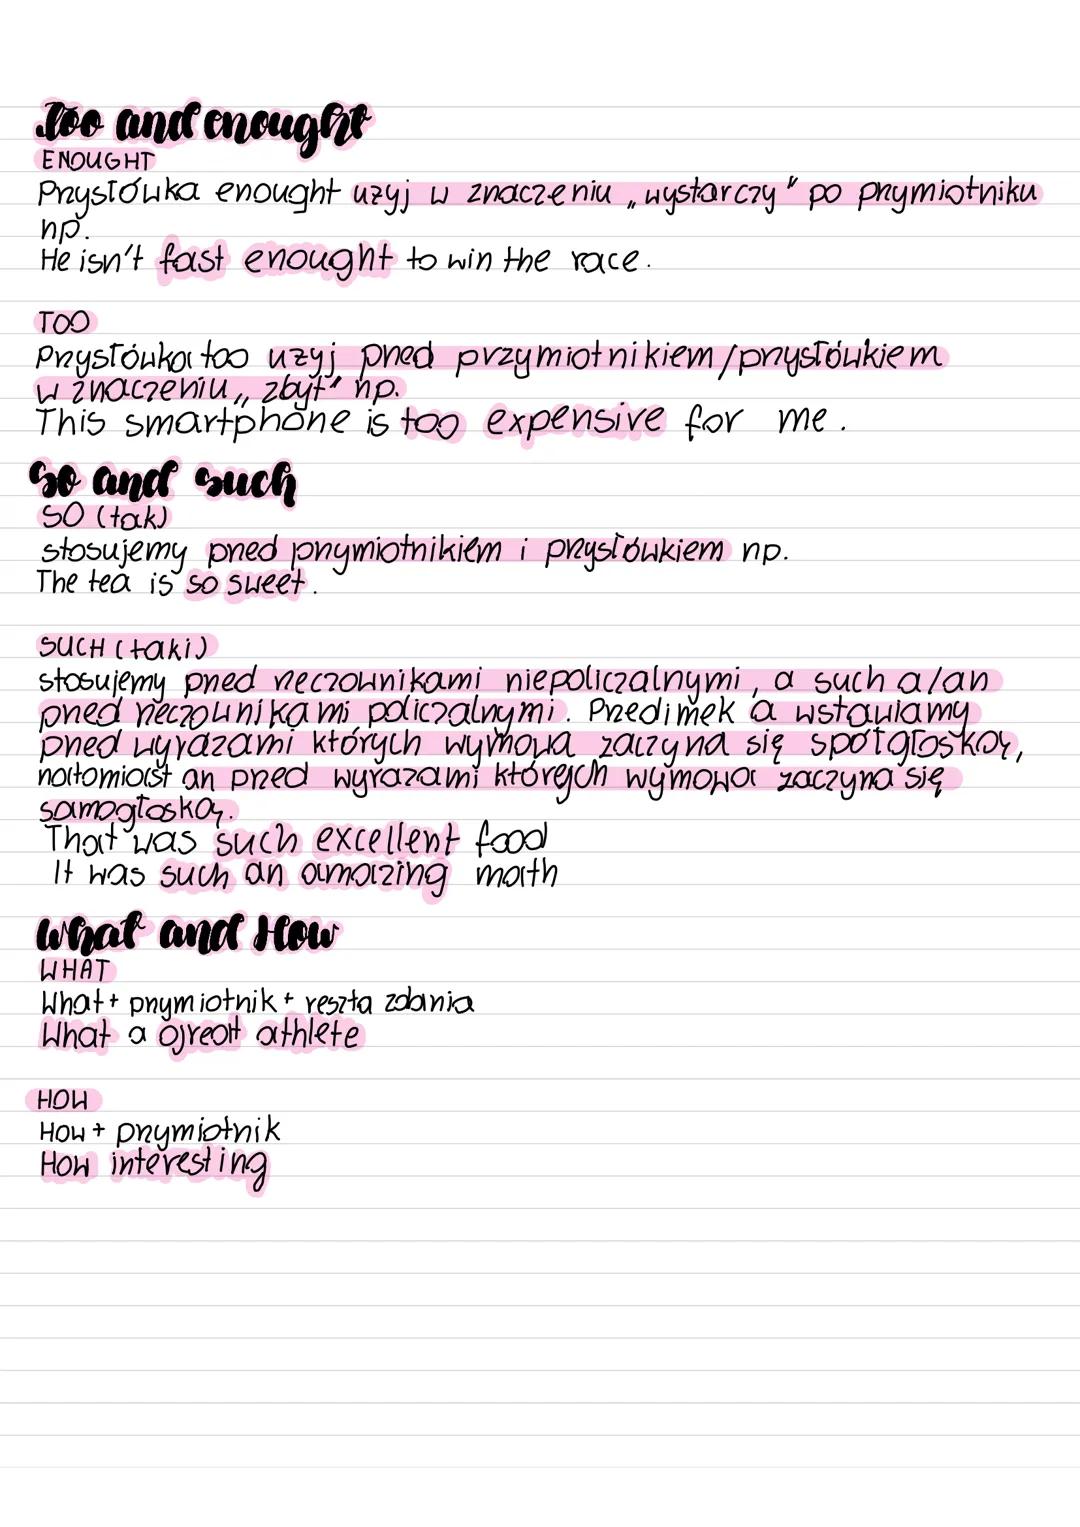 Too and enought
ENOUGHT
Przysłówka enought użyj w znaczeniu „wystarczy" po przymiotniku
np.
He isn't fast enought to win the race.
TOO
Przysłówka too użyj przed przymiotnikiem/przysłówkiem
w znaczeniu „zbyt" np.
This smartphone is too expensive for me.
So and such
SO (tak)
stosujemy przed przymiotnikiem i przysłówkiem np.
The tea is so sweet.
SUCH (taki)
stosujemy przed rzeczownikami niepoliczalnymi, a such a/an
przed rzeczownikami policzalnymi. Przedimek a wstawiamy
przed wyrazami których wymowa zaczyna się spółgłoską,
natomiast an przed wyrazami których wymowa zaczyna się
samogłoską.
That was such excellent food
It was such an amazing math
What and How
WHAT
What + przymiotnik + reszta zdania
What a great athlete
HOW
How + przymiotnik
How interesting